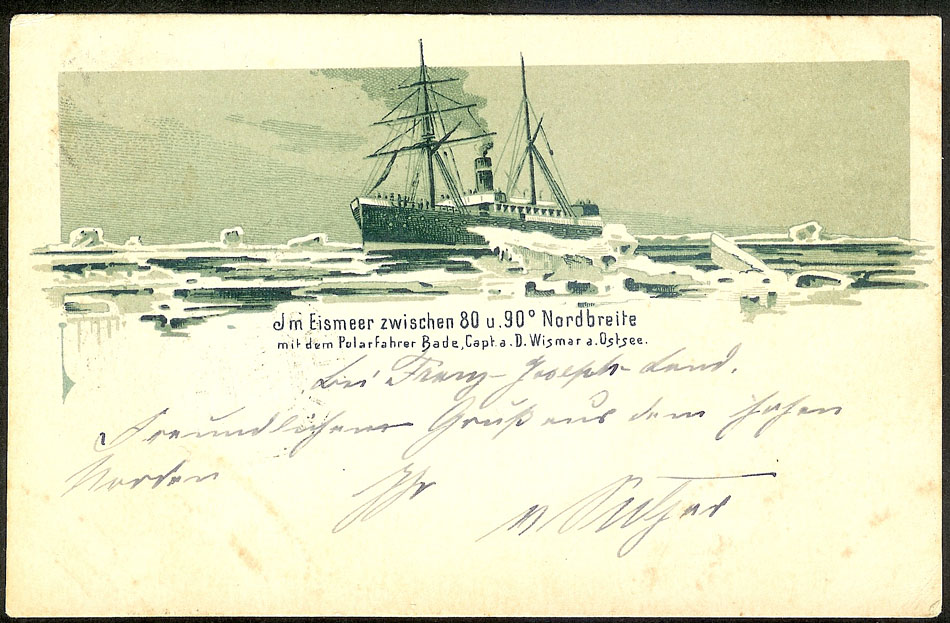 Im Eismeer zwischen 80 u. 90° Nordbreite
mit dem Polarfahrer Bade, Capt. a. D. Wismar a. Ostsee.
bei Franz-Joseph-Land.
Freundlichen Gruß aus dem hohen
Norden Ihr